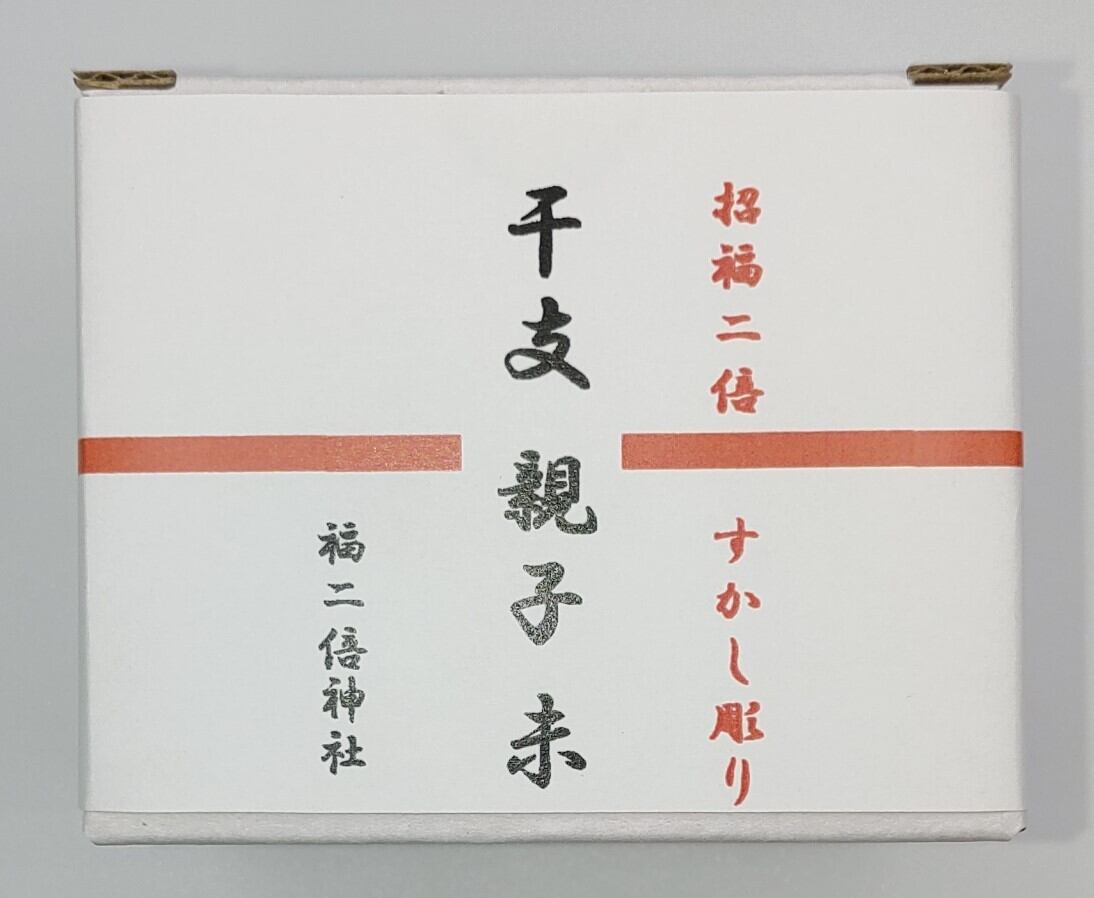 招福二倍 すかし彫り
干支 親子 未
福二倍神社